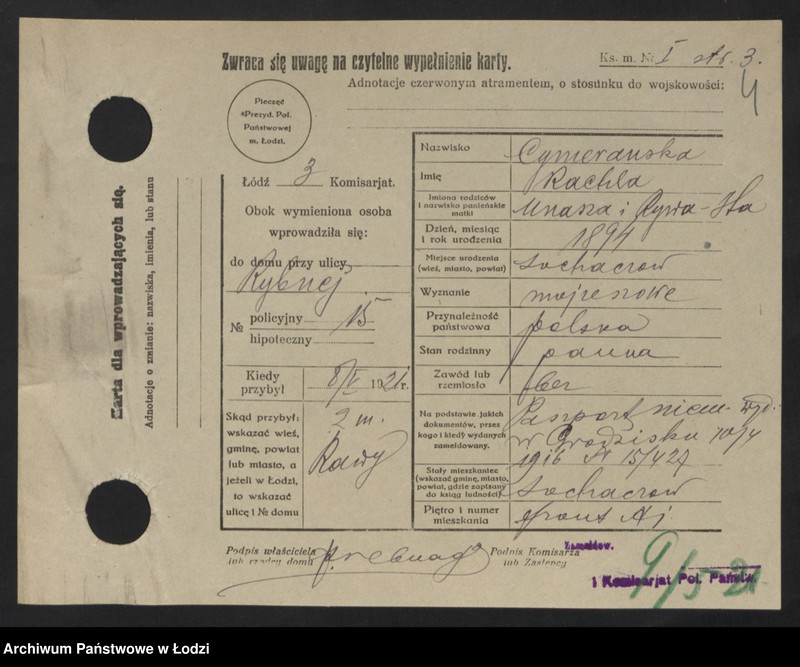 Zwraca się uwagę na czytelne wypełnienie karty.
Ks. m. № I str. 3.
4
Adnotacje czerwonym atramentem, o stosunku do wojskowości:
Pieczęć
Prezyd. Pol.
Państwowej
m. Łodzi.
Karta dla wprowadzających się.
Adnotacje o zmianie: nazwiska, imienia, lub stanu
Łódź 3 Komisarjat.
Obok wymieniona osoba
wprowadziła się:
do domu przy ulicy
Rybnej
№ policyjny 15
hipoteczny
Kiedy przybył 8/V 1921 r.
Skąd przybył:
wskazać wieś,
gminę, powiat
lub miasto, a
jeżeli w Łodzi,
to wskazać
ulicę i № domu
z m.
Rawy
Nazwisko Cymerańska
Imię Rachla
Imiona rodziców i nazwisko panieńskie matki Mnasza i Rywa-
Dzień, miesiąc i rok urodzenia 1894
Miejsce urodzenia (wieś, miasto, powiat) Sochaczow
Wyznanie mojżeszowe
Przynależność państwowa polska
Stan rodzinny panna
Zawód lub rzemiosło bez
Na podstawie jakich dokumentów, przez kogo i kiedy wydanych zameldowany.
Pasport niem. wyd.
w Grodzisku 10/4
1916 № 15/427
Stały mieszkaniec (wskazać gminę, miasto, powiat, gdzie zapisany do ksiąg ludności) Sochaczow
Piętro i numer mieszkania front
Podpis właściciela
lub rządcy domu
Podpis Komisarza
lub Zastępcy
Zameldow.
I Komisarjat Pol. Państw.
9/5-21
Archiwum Państwowe w Łodzi